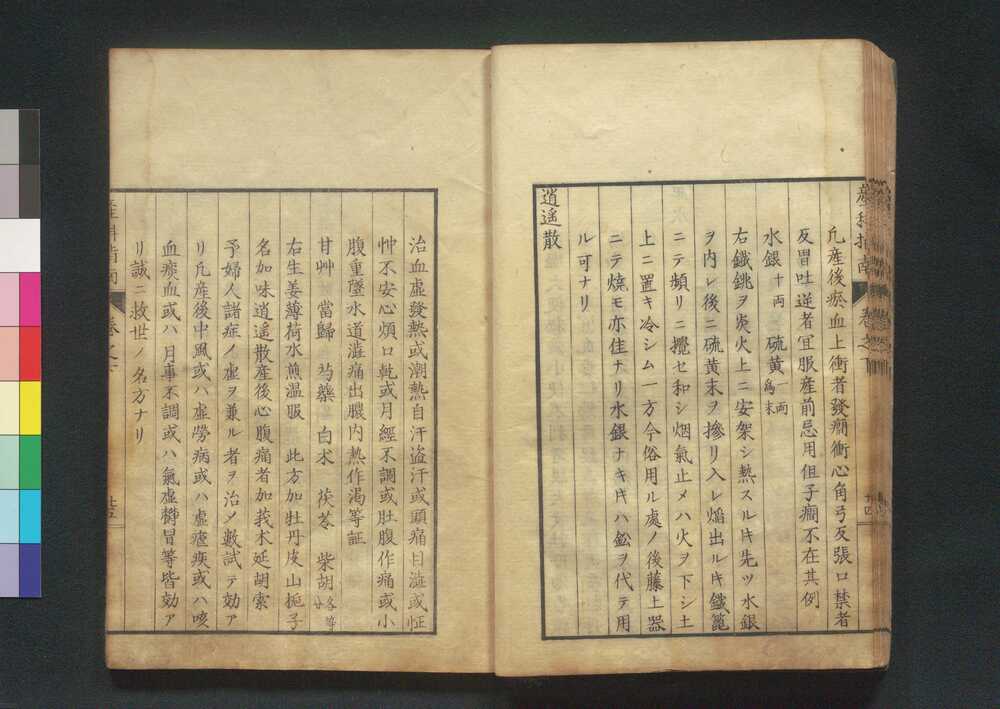 産科指南 卷之下 廿四
凡産後瘀血上衝者發癇衝心角弓反張口禁者
及冒吐逆者宜服産前忌用但子癇不在其例
水銀十両 硫黄一両為末
右鐵銚ヲ炎火上ニ安架シ熱スル片先ツ水銀
ヲ内レ後ニ硫黄末ヲ摻リ入レ熖出ル片鐵篦
ニテ頻リニ攪セ和シ烟氣止メハ火ヲ下シ土
上ニ置キ冷シム一方今俗用ル處ノ後藤上噐
ニテ燒モ亦佳ナリ水銀ナキ片ハ鈆ヲ代テ用
ル可ナリ
逍遥散
治血虛發熱或潮熱自汗盗汗或頭痛目澁或怔
忡不安心煩口乾或月經不調或肚腹作痛或小
腹重墜水道澁痛出膿内熱作渇等証
甘艸 當歸 芍藥 白朮 茯苓 柴胡各等分
右生姜薄荷水煎温服 此方加牡丹皮山梔子
名加味逍遥散産後心腹痛者加莪朮延胡索
予婦人諸症ノ虛ヲ兼ル者ヲ治メ數試テ効ア
リ凡産後中風或ハ虛勞病或ハ虛瘧疾或ハ咳
血瘀血或ハ月事不調或ハ氣虛欝冒等皆効ア
リ誠ニ救世ノ名方ナリ
産科指南 卷之下 廿五